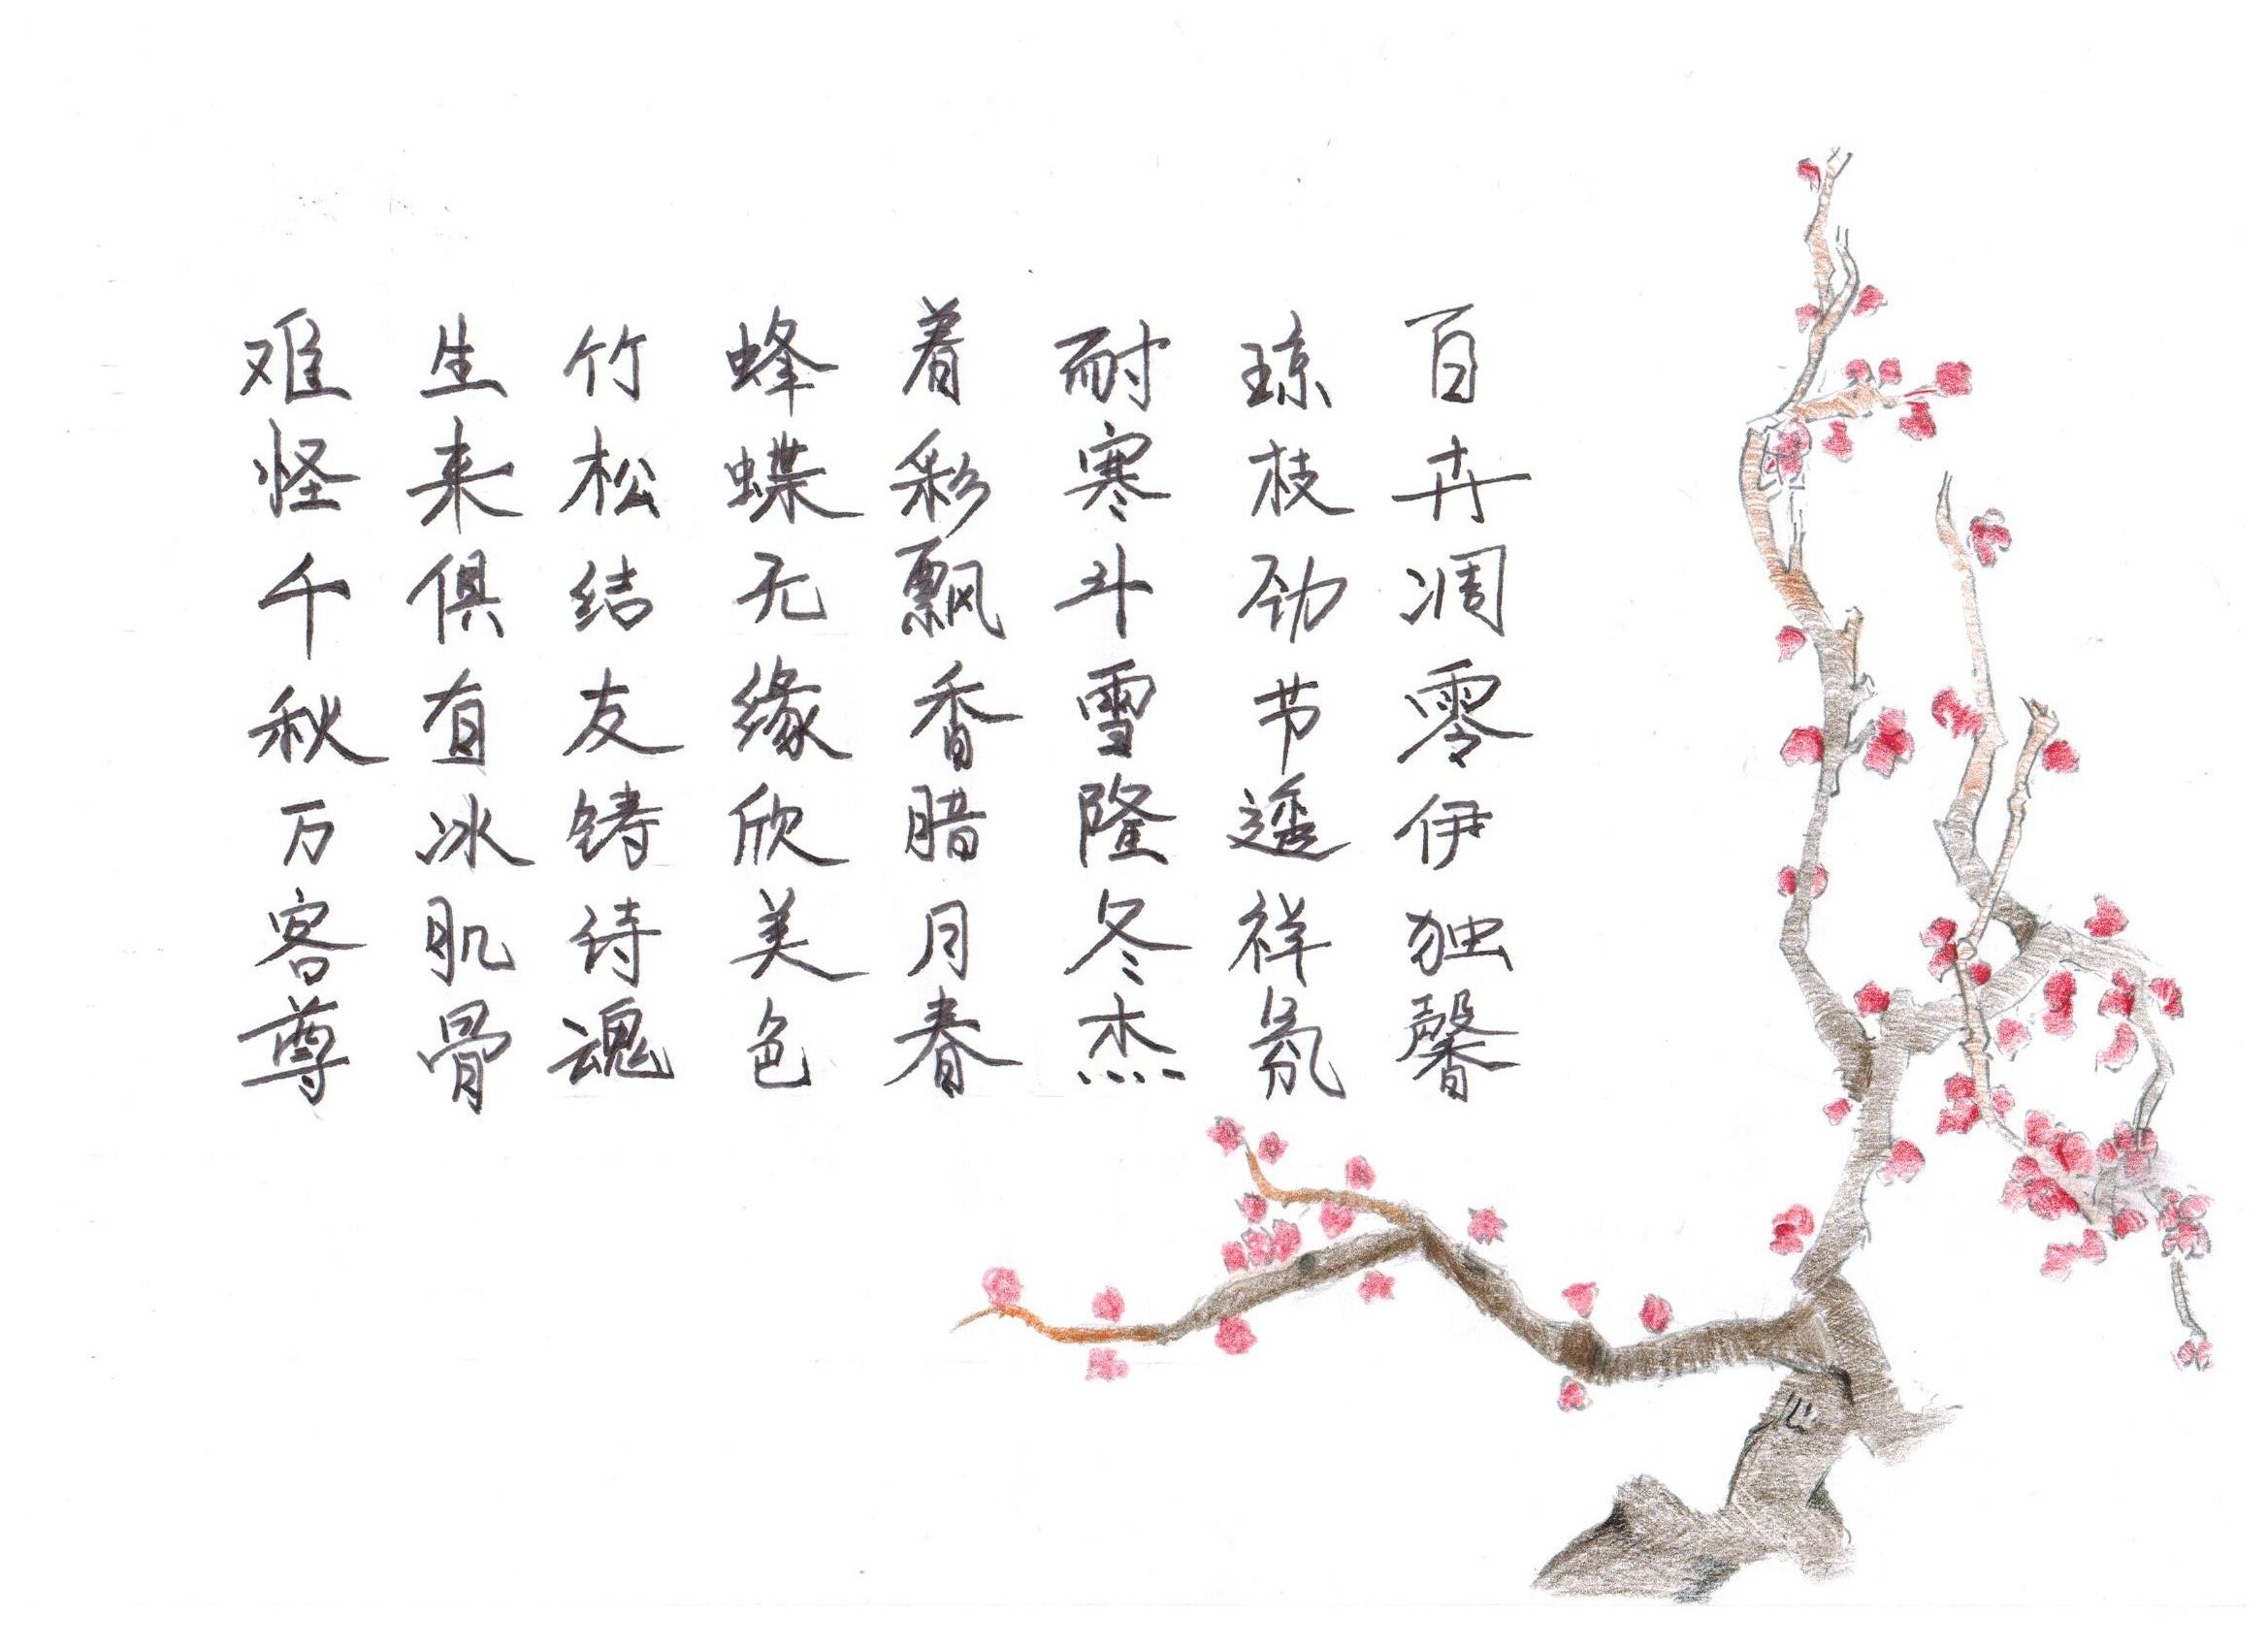 百卉凋零伊独馨
琼枝劲节透祥氛
耐寒斗雪隆冬杰
着彩飘香腊月春
蜂蝶无缘欣美色
竹松结友铸诗魂
生来俱有冰肌骨
难怪千秋万客尊